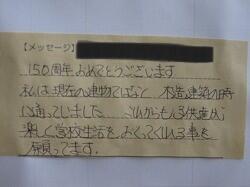 【メッセージ】
150周年おめでとうございます
私は現在の建物ではなく 木造建築の時
に通っていました これからも子供達が
楽しく学校生活をおくってくれる事を
願ってます。